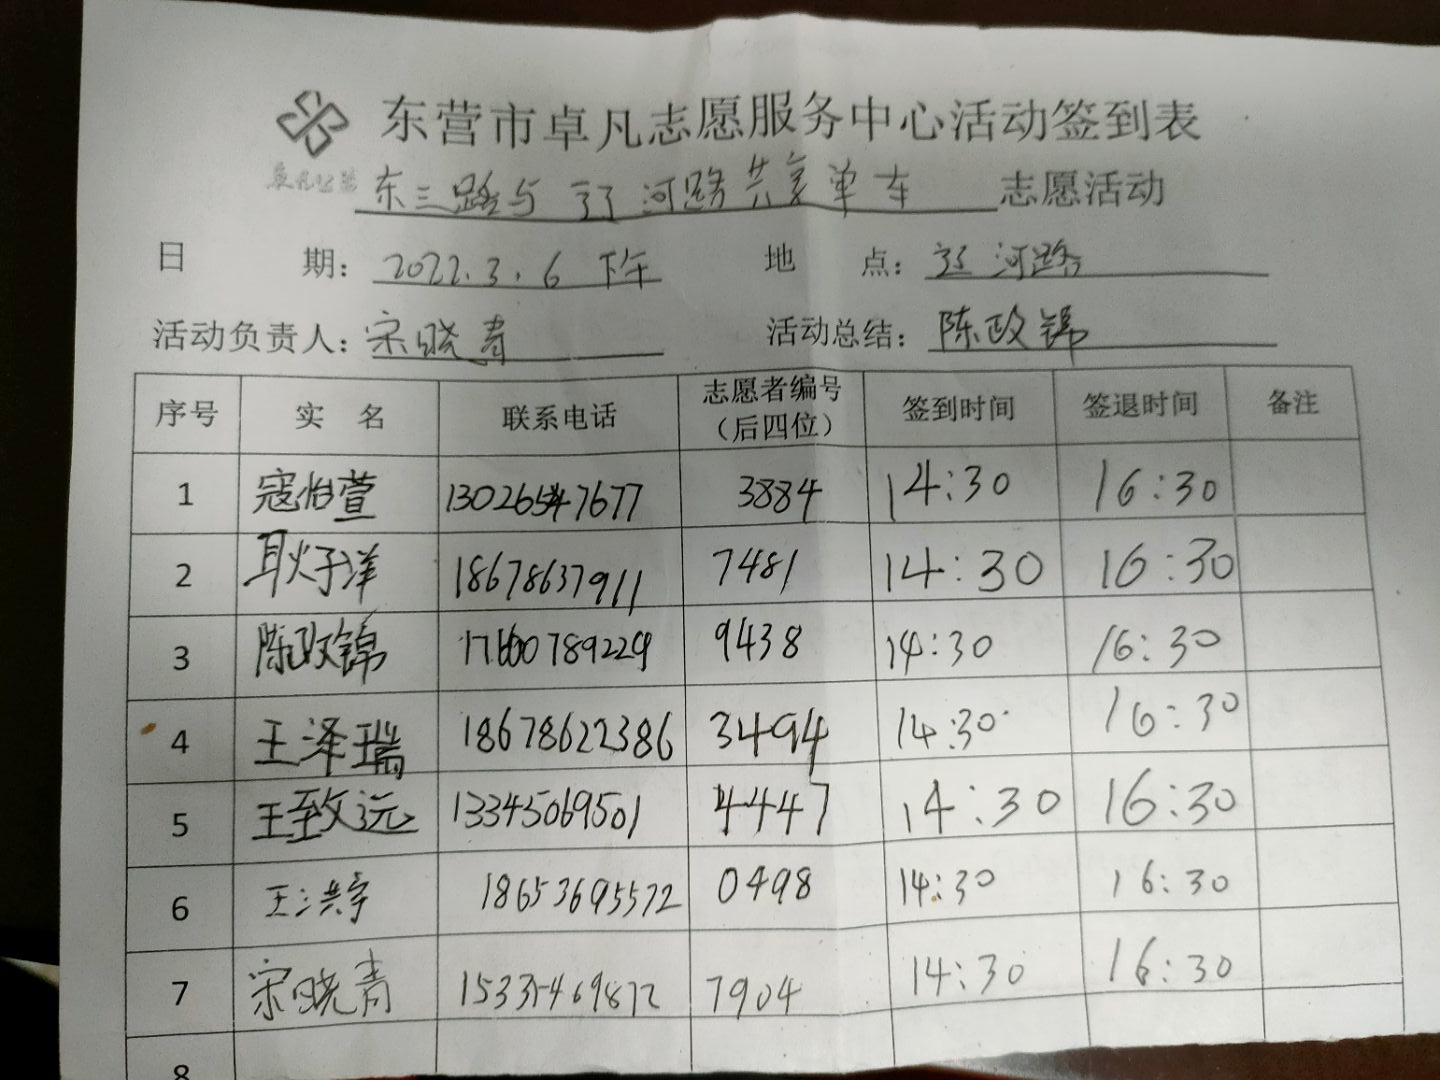 东营市卓凡志愿服务中心活动签到表
卓凡公益 东三路与辽河路共享单车 志愿活动
日 期：2022.3.6 下午 地 点：辽河路
活动负责人：宋晓青 活动总结：陈政锦
序号 实 名 联系电话 志愿者编号（后四位） 签到时间 签退时间 备注
1 寇怡萱 3884 14:30 16:30
2 耿子洋 18678637911 7481 14:30 16:30
3 陈政锦 9438 14:30 16:30
4 王泽瑞 18678622386 3494 14:30 16:30
5 王致远 13345069501 4447 14:30 16:30
6 王洪宇 18653695572 0498 14:30 16:30
7 宋晓青 7904 14:30 16:30
8